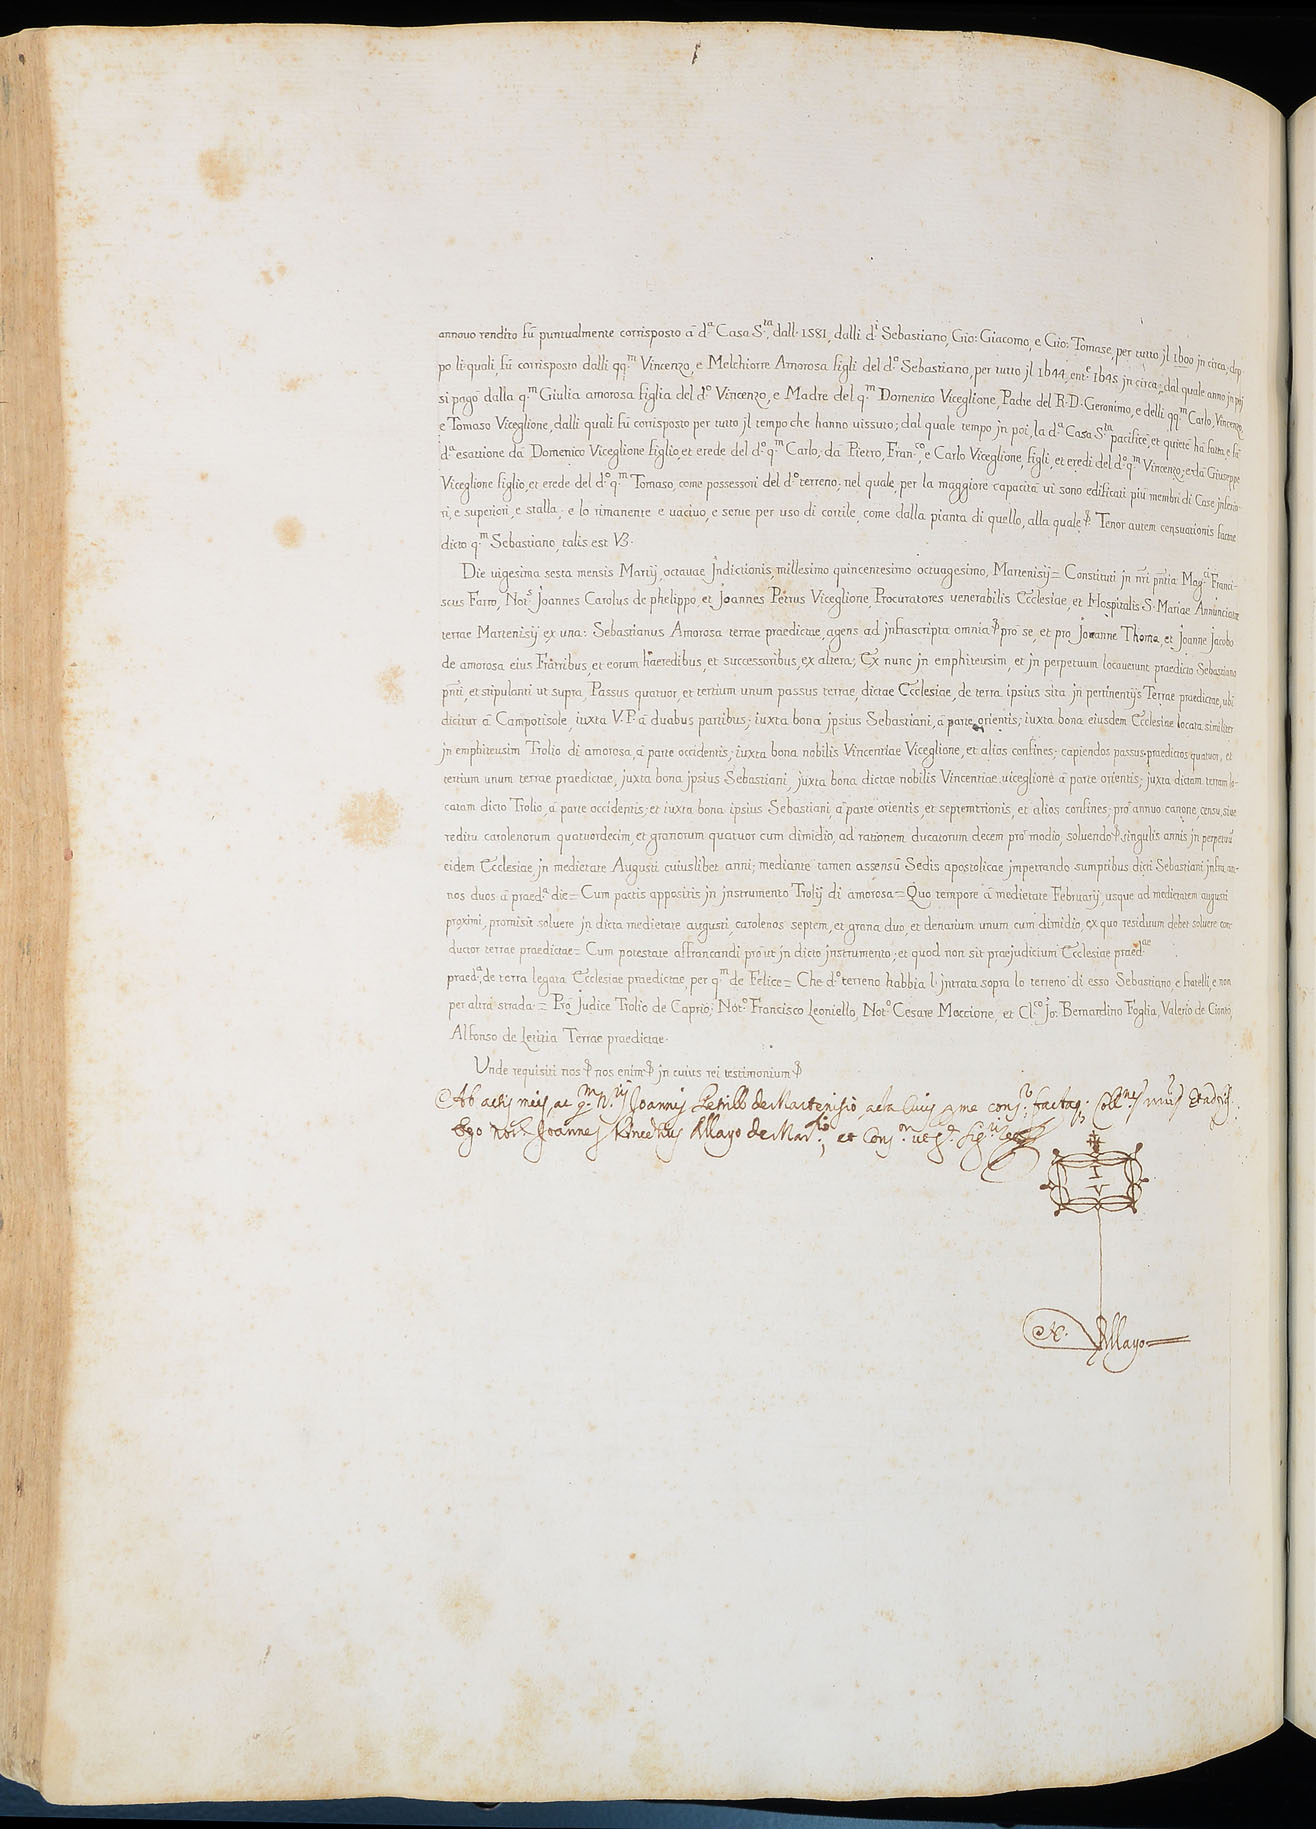 annouo rendito fù puntualmente corrisposto à d.ª Casa S.ta, dall. 1581, dalli d.i Sebastiano, Gio: Giacomo, e Gio: Tomase, per tutto jl 1600 jn circa; dop-
po li quali, fù corrisposto dalli qq.m Vincenzo, e Melchiorre Amorosa figli del d.o Sebastiano, per tutto jl 1644, ent.e 1645 jn circa; dal quale anno jn poj
si pagò dalla q.m Giulia amorosa figlia del d.o Vincenzo, e Madre del q.m Domenico Viceglione, Padre del R.D. Geronimo, e delli qq.m Carlo, Vincenzo,
e Tomaso Viceglione, dalli quali fù corrisposto per tutto jl tempo che hanno uissuto; dal quale tempo jn poi, la d.ª Casa S.ta pacifice, et quietè hà fatta, e fà
d.ª esattione da Domenico Viceglione figlio, et erede del d.o q.m Carlo; dà Pietro, Fran.co, e Carlo Viceglione, figli, et eredi del d.o q.m Vincenzo; e dà Giuseppe
Viceglione figlio, et erede del d.o q.m Tomaso, come possessori del d.o terreno; nel quale, per la maggiore capacità ui sono edificati più membri di Case jnferio-
ri, e superiori, e stalla; e lo rimanente e uacuo, e serue per uso di cortile, come dalla pianta di quello, alla quale &. Tenor autem censuationis factae
dicto q.m Sebastiano, talis est V3.
Die uigesima sexta mensis Martij, octauae Jndictionis, millesimo quincentesimo octuagesimo, Martenisij= Constituti jn nrĩ pntia Mag.ci Franci-
scus Farro, Not.s Joannes Carolus de phelippo, et Joannes Petrus Viceglione, Procuratores uenerabilis Ecclesiae, et Hospitalis S. Mariae Annunciatae
terrae Martenisij ex una: Sebastianus Amorosa terrae praedictae, agens ad jnfrascripta omnia & prò se, et pro Joanne Thoma, et Joanne Jacobo
de amorosa eius Fratribus, et eorum haeredibus, et successoribus, ex altera; Ex nunc jn emphiteusim, et jn perpetuum locauerunt praedicto Sebastiano
pntì, et stipulanti ut supra, Passus quatuor, et tertium unum passus terrae, dictae Ecclesiae, de terra ipsius sita jn pertinentijs Terrae praedictae, ubi
dicitur à Campotisole, iuxta V.P. à duabus partibus; iuxta bona jpsius Sebastiani, à parte orientis; iuxta bona eiusdem Ecclesiae locata similiter
jn emphiteusim Trolio di amorosa, à parte occidentis; iuxta bona nobilis Vincentiae Viceglione, et alios confines; capiendos passus praedictos quatuor, et
tertium unum terrae praedictae, juxta bona jpsius Sebastiani, juxta bona dictae nobilis Vincentiae uiceglione à parte orientis; juxta dictam terram lo-
catam dicto Trolio, à parte occidentis; et iuxta bona ipsius Sebastiani, à parte orientis, et septemtrionis, et alios confines; prò annuo canone, censu, siue
redditu carolenorum quatuordecim, et granorum quatuor cum dimidio, ad rationem ducatorum decem prò modio, soluendo & singulis annis jn perpetuũ
eidem Ecclesiae, jn medietate Augusti cuiuslibet anni; mediante tamen assensù Sedis apostolicae jmpetrando sumptibus dicti Sebastiani jnfra an-
nos duos à praed.ª die= Cum pactis appositis jn jnstrumento Trolij di amorosa= Quo tempore à medietate Februarij, usque ad medietatem augusti
proximi, promisit soluere jn dicta medietate augusti, carolenos septem, et grana duo, et denarium unum cum dimidio, ex quo residuum debet soluere con-
ductor terrae praedictae= Cum potestate affrancandi proùt jn dicto jnstrumento; et quod non sit praejudicium Ecclesiae praed.ae
praed.ª, de terra legata Ecclesiae praedictae, per q.m de Felice= Che d.o terreno habbia l' jntrata sopra lo terreno di esso Sebastiano, e fratelli, e non
per altra strada.= Prò Judice Trolio de Caprio; Not.o Francisco Leoniello, Not.o Cesare Moccione, et Cl.co Jo: Bernardino Foglia, Valerio de Cionto,
Alfonso de Letitia Terrae praedictae.
Unde requisiti nos & nos enim & jn cuius rei testimonium &
Ab actis meis, ac q.m N.rij Joannis Petrillo de Martenisio
Ego Not.r Joannes Mayo de Mar.sio,
I
V
N. Mayo